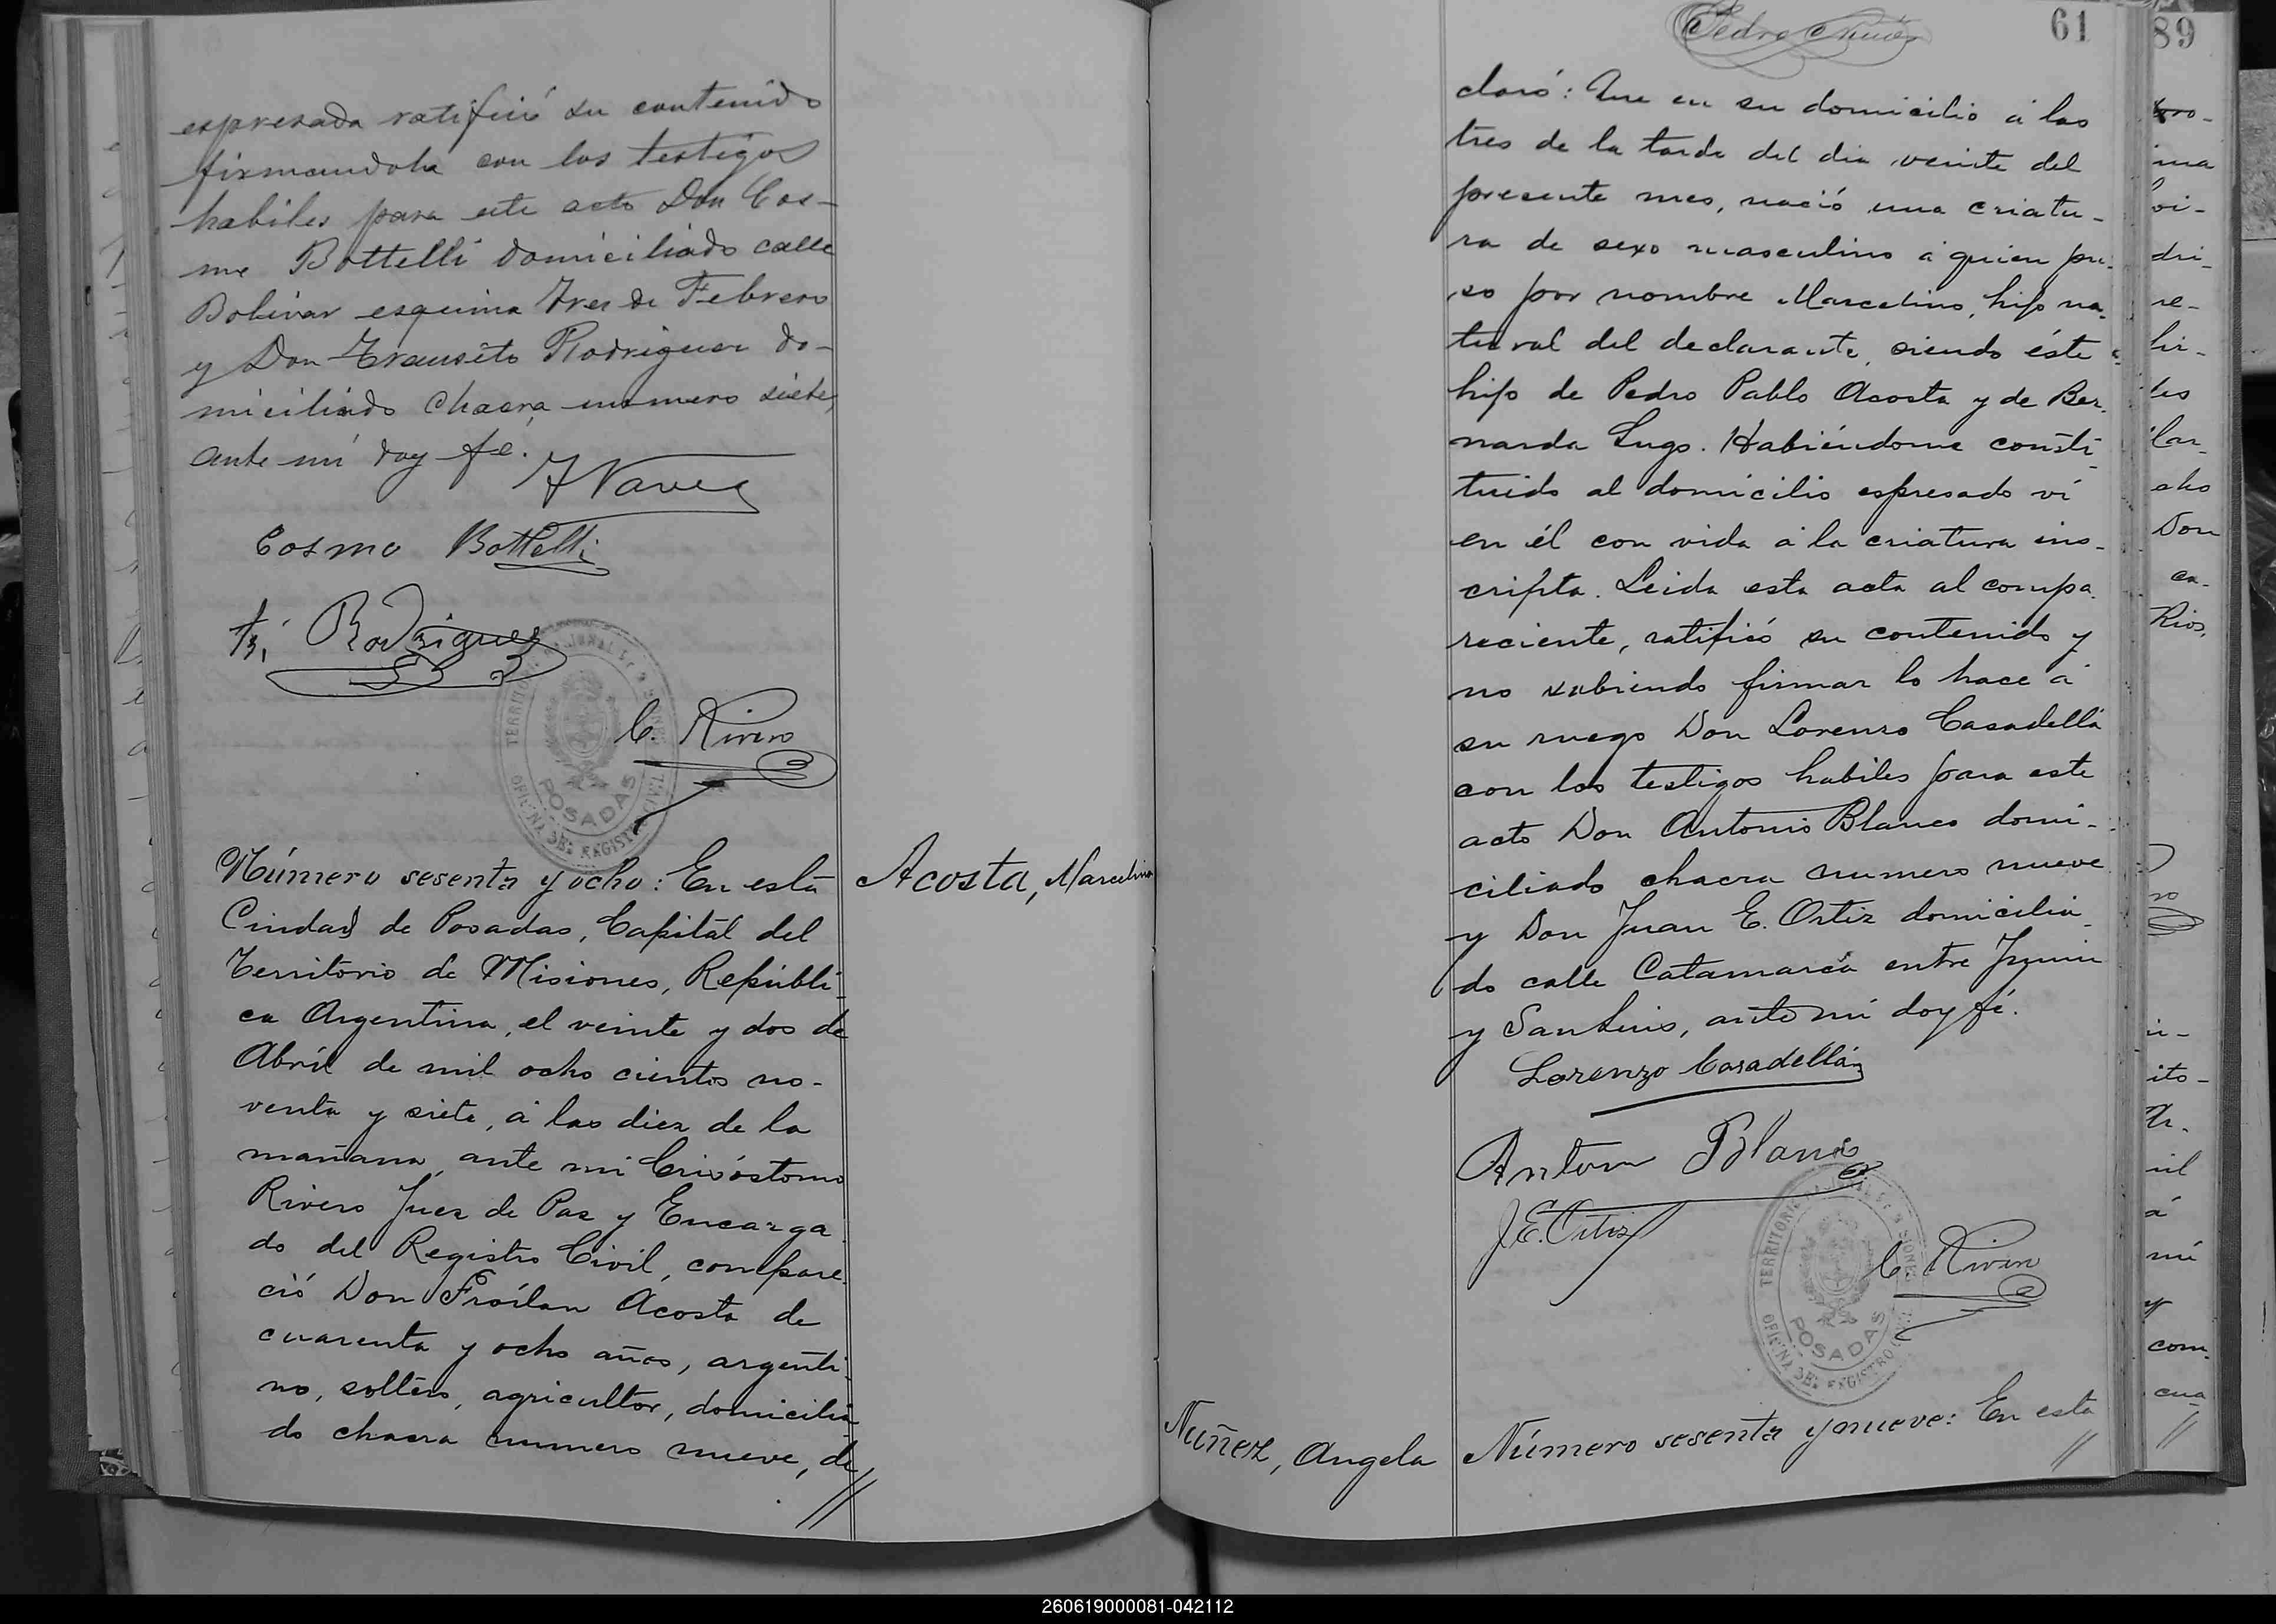 espresada ratificó su contenido
firmandola con los testigos
habiles para este acto Don Cos-
me Bottelli domiciliado calle
Bolivar esquina Tres de Febrero
y Don Transito Rodriguez do-
miciliado Chacra numero siete,
ante mi doy fe.
Cosme Bottelli
Rodriguez
C. Rivero
TERRITORIO NACIONAL DE MISIONES
POSADAS
OFICINA DEL REGISTRO CIVIL
Número sesenta y ocho: En esta
Acosta, Marcelino
Ciudad de Posadas, Capital del
Territorio de Misiones, Repúbli-
ca Argentina, el veinte y dos de
Abril de mil ocho cientos no-
venta y siete, á las diez de la
mañana, ante mi Crisóstomo
Rivero Juez de Paz y Encarga
do del Registro Civil, compare-
ció Don Froílan Acosta de
cuarenta y ocho años, argenti-
no, soltero, agricultor, domicilia
do chacra numero nueve, de
//
61
claró: Que en su domicilio á las
tres de la tarde del dia veinte del
presente mes, nació una criatu-
ra de sexo masculino á quien pu-
so por nombre Marcelino, hijo na-
tural del declarante, siendo éste
hijo de Pedro Pablo Acosta y de Ber-
narda Lugo. Habiéndome consti-
tuido al domicilio espresado ví
en él con vida á la criatura ins-
cripta. Leida esta acta al compa-
reciente, ratificó su contenido y
no sabiendo firmar lo hace á
su ruego Don Lorenzo Casadellá
con los testigos habiles para este
acto Don Antonio Blanco domi-
ciliado chacra numero nueve
y Don Juan E. Ortiz domicilia-
do calle Catamarca entre Junin
y San Luis, ante mí doy fé.
Lorenzo Casadellá
Antonio Blanco
J. E. Ortiz
C. Rivero
TERRITORIO NACIONAL DE MISIONES
POSADAS
OFICINA DEL REGISTRO CIVIL
Nuñez, Angela
Número sesenta y nueve: En esta
//
89
ma
vi-
dri-
re-
hir-
tes
lar-
cho
Don
ca-
Rios,
ito-
á
mi
y
com-
cua-
//
260619000081-042112